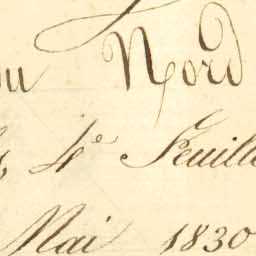 du Nord
4e Feuille
Mai 1830